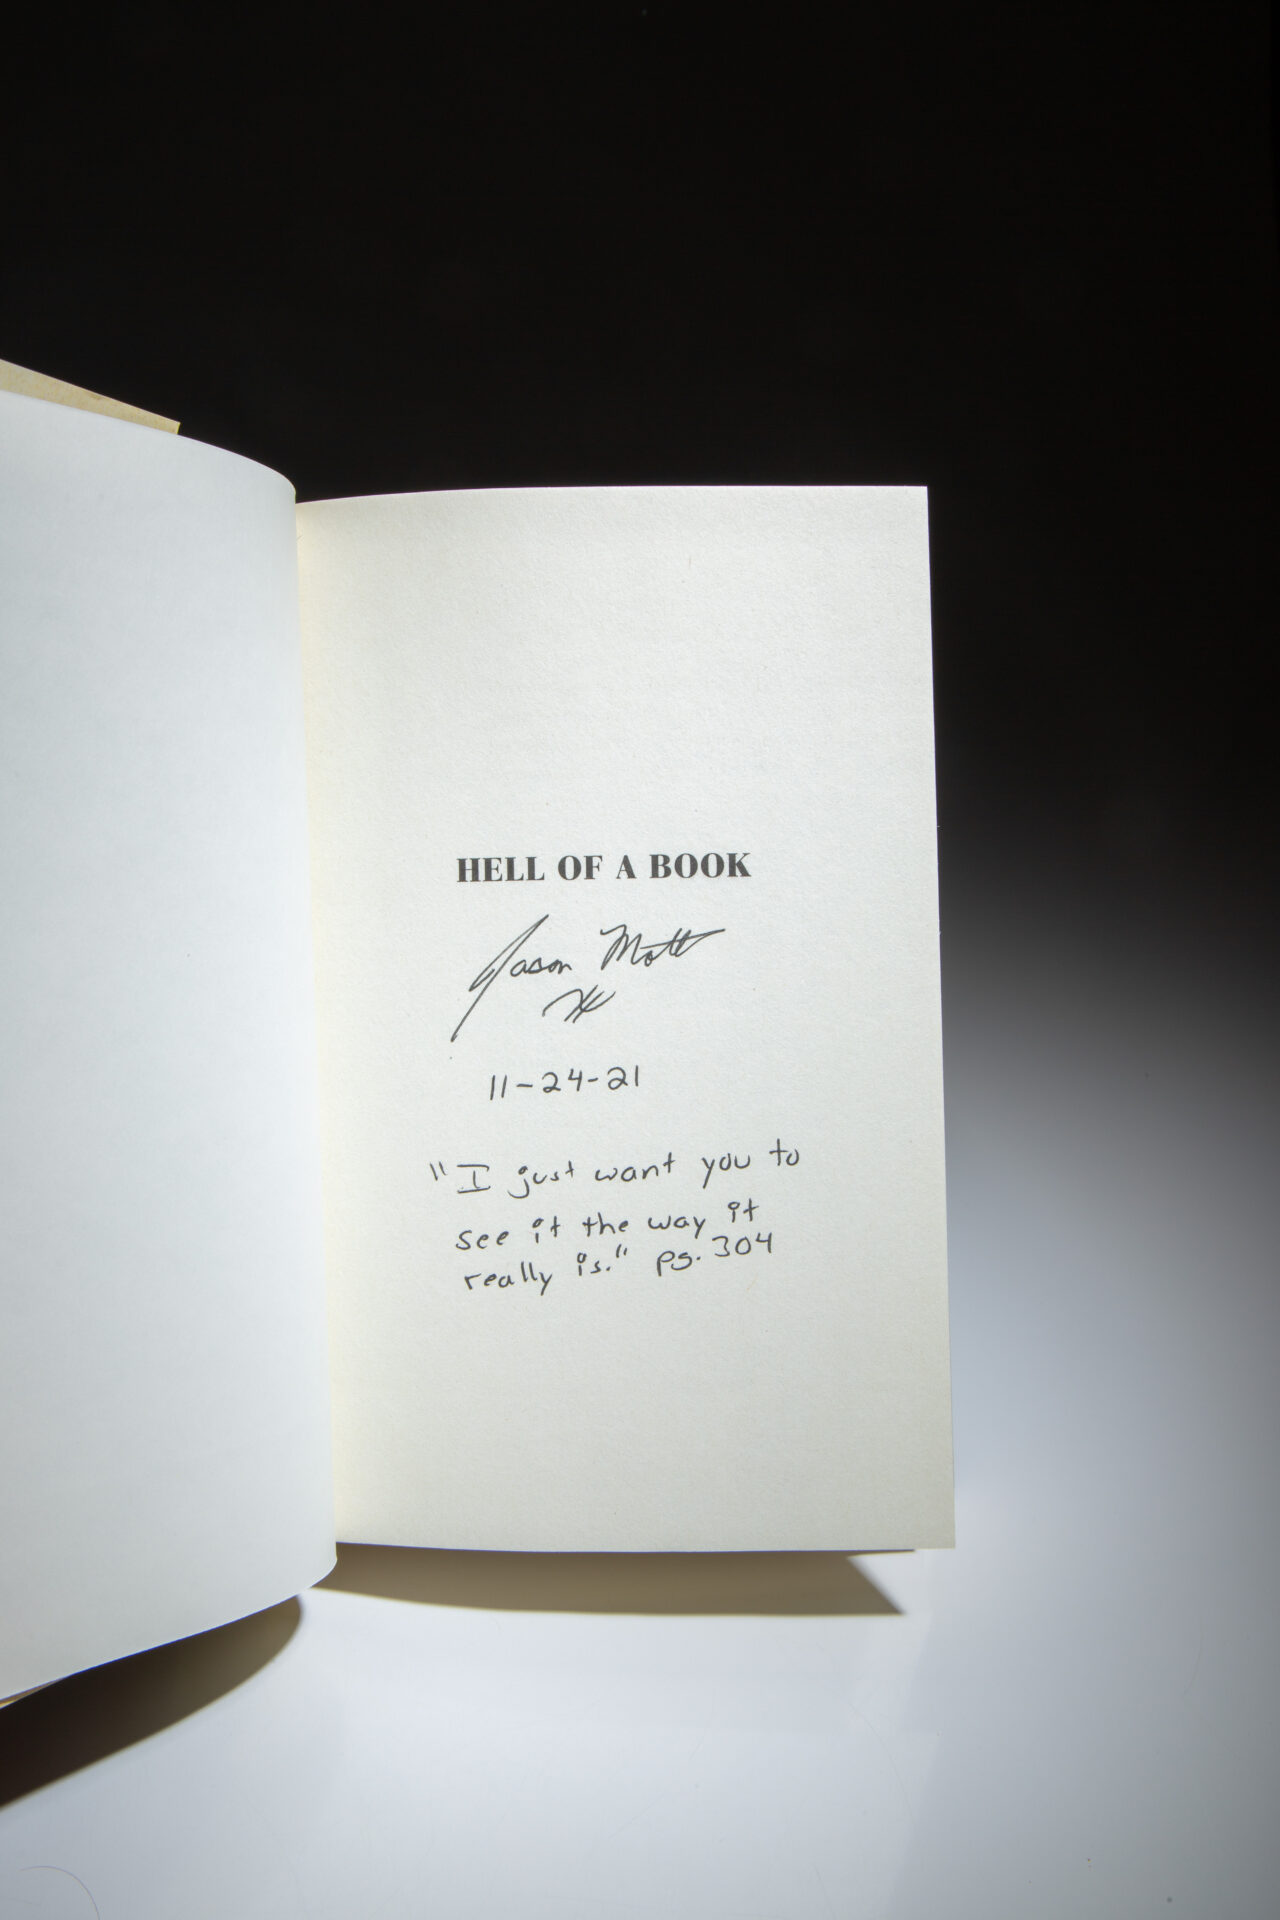 HELL OF A BOOK
Jason Mott
11-24-21
"I just want you to
see it the way it
really is." pg. 304